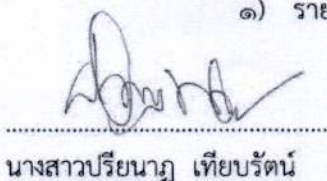 ๑) ราย
นางสาวปรียนาฎ เทียบรัตน์